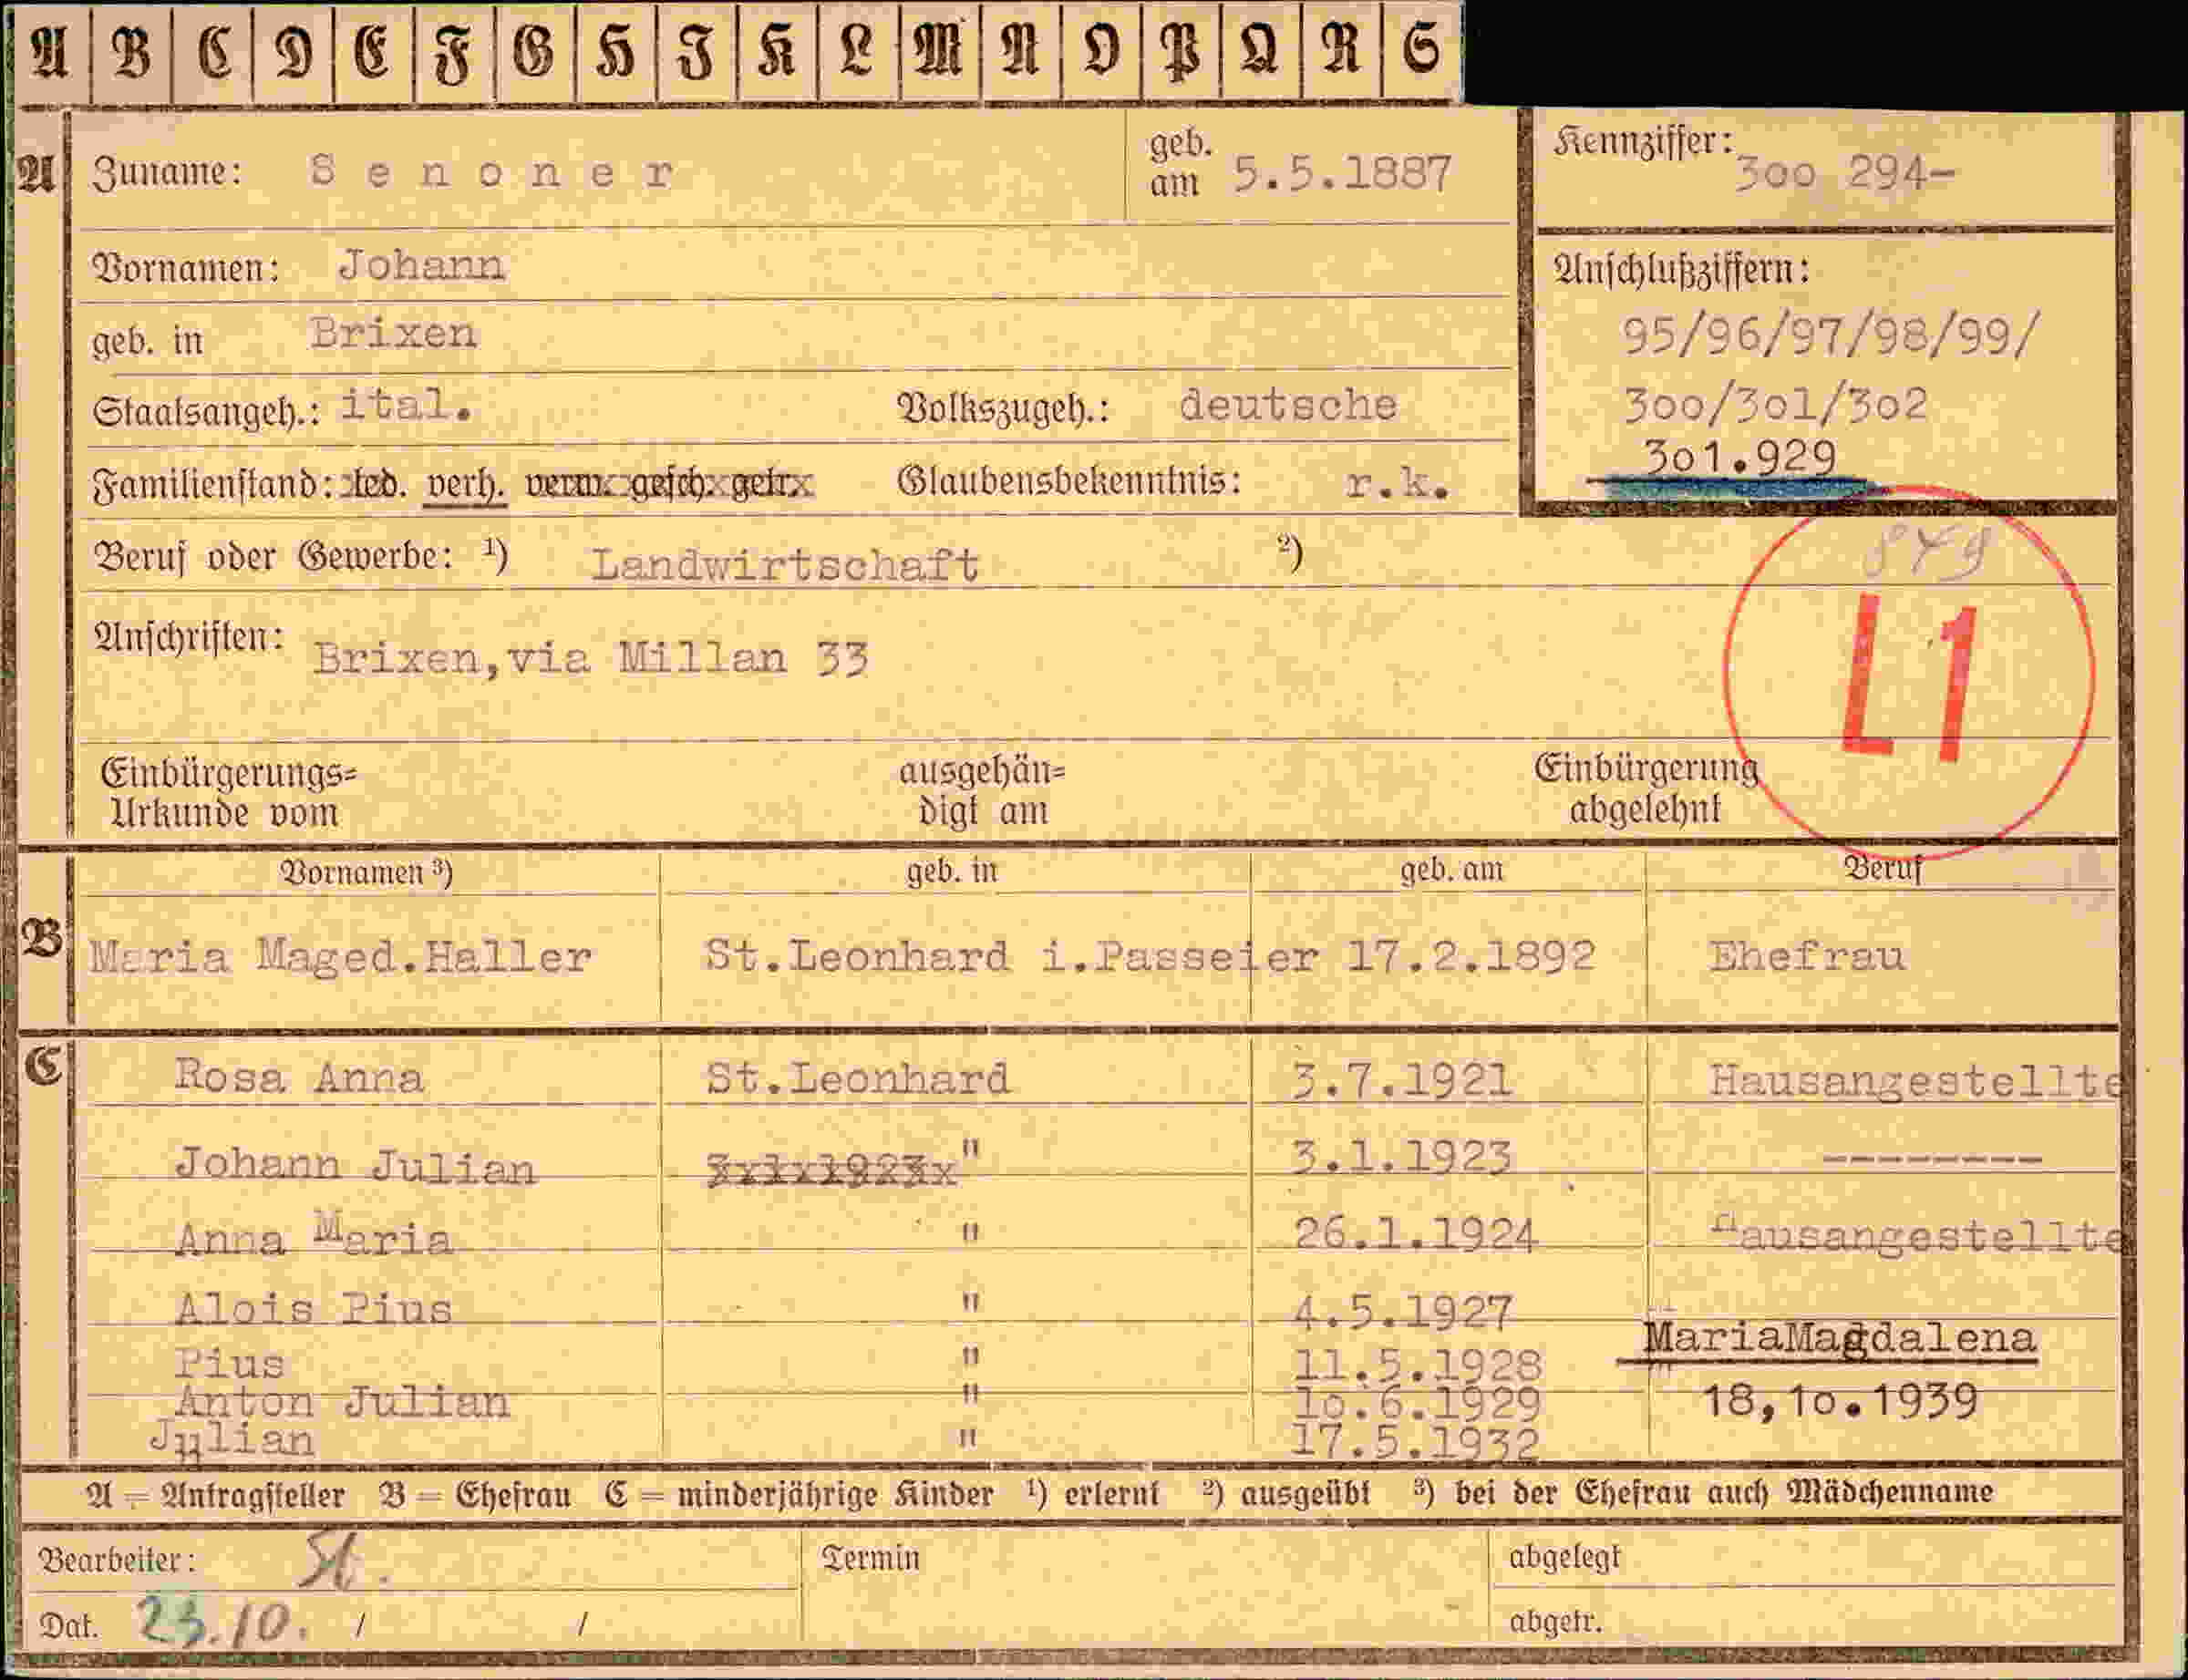 A B C D E F G H I K L M N O P Q R S
A Zuname: Senoner geb. am 5.5.1887 Kennziffer: 300 294-
Vornamen: Johann
Anschlußziffern:
geb. in Brixen 95/96/97/98/99/
Staatsangeh.: ital. Volkszugeh.: deutsche 300/301/302
301.929
Familienstand: led. verh. verw. gesch. getr. Glaubensbekenntnis: r.k.
Beruf oder Gewerbe: ¹) Landwirtschaft ²) 879
Anschriften: Brixen,via Millan 33
L1
Einbürgerungs= ausgehän= Einbürgerung
Urkunde vom digt am abgelehnt
Vornamen ³) geb. in geb. am Beruf
B Maria Maged.Haller St.Leonhard i.Passeier 17.2.1892 Ehefrau
C Rosa Anna St.Leonhard 3.7.1921 Hausangestellte
Johann Julian 3x1x1923x" 3.1.1923 --------
Anna Maria " 26.1.1924 Hausangestellte
Alois Pius " 4.5.1927
MariaMagdalena
Pius " 11.5.1928
Anton Julian " 10.6.1929 18,10.1939
Julian " 17.5.1932
A = Antragsteller B = Ehefrau C = minderjährige Kinder ¹) erlernt ²) ausgeübt ³) bei der Ehefrau auch Mädchenname
Bearbeiter: St. Termin abgelegt
Dat. 23.10. / / abgetr.